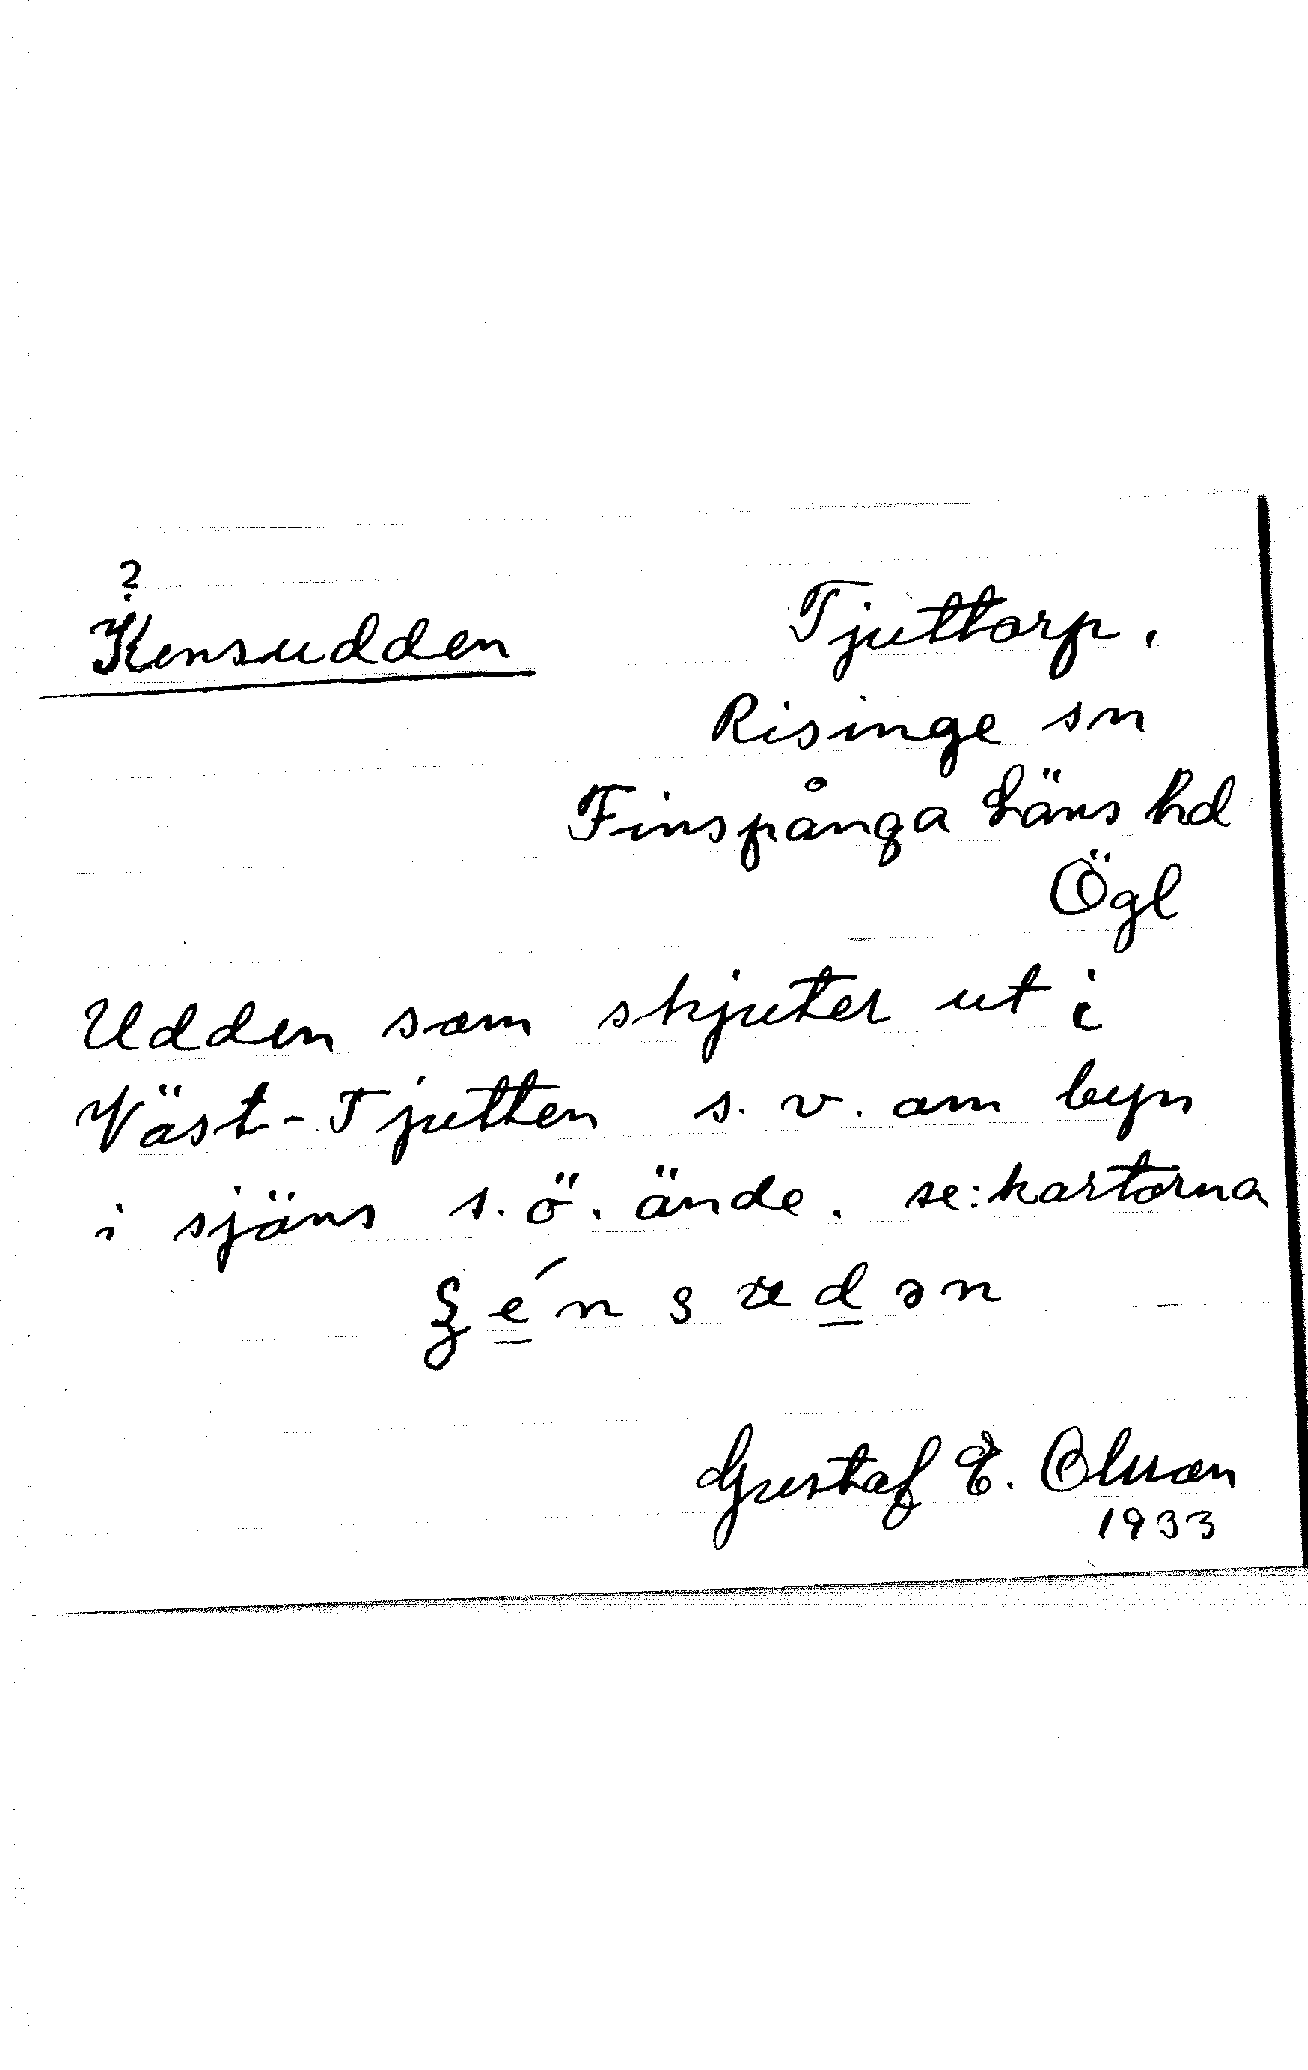 ?
Kensudden
Tjuttorp.
Risinge sn
Finspånga Läns hd
Ögl
Udden som skjuter ut i
Väst-Tjutten s.v. om byn
i sjöns s.ö. ände. se: kartorna
Gustaf E. Olsson
1933